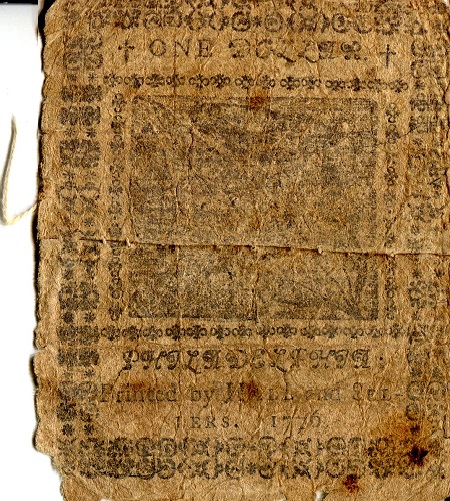 ONE DOLLAR
PHILADELPHIA:
Printed by HALL and SEL-
LERS. 1776